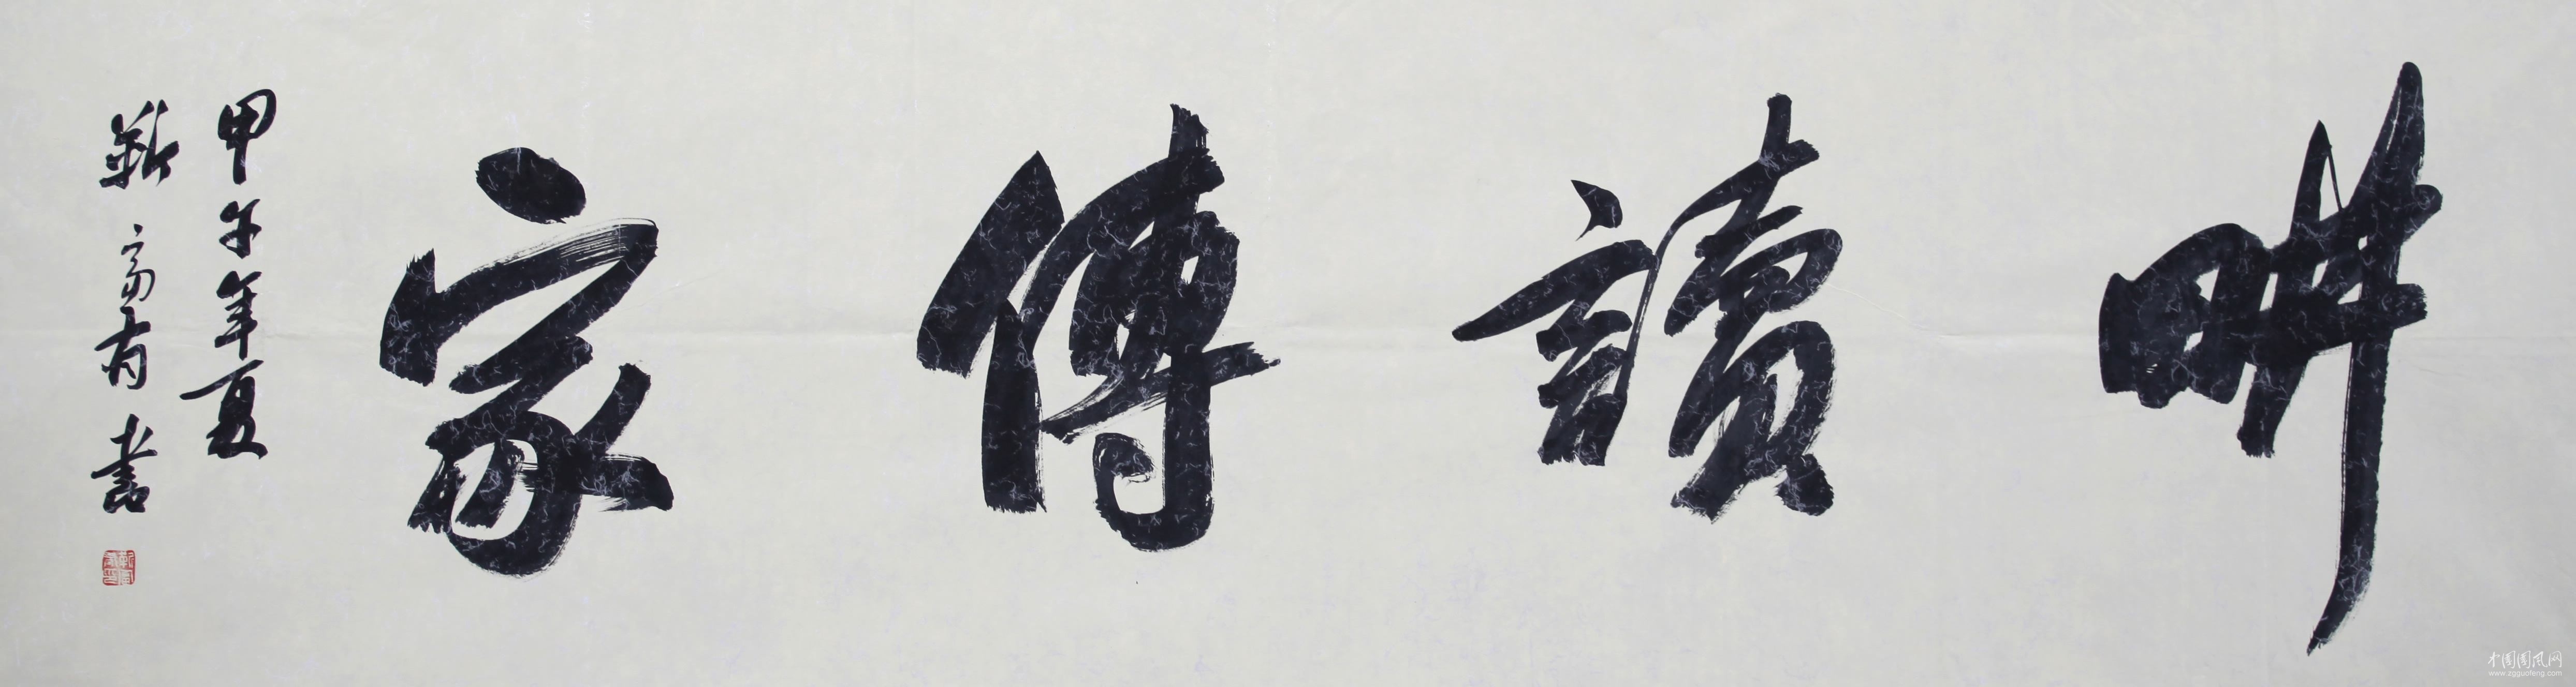 畊讀傳家
甲午年夏
靳富有書
中國國风网
www.zgguofeng.com